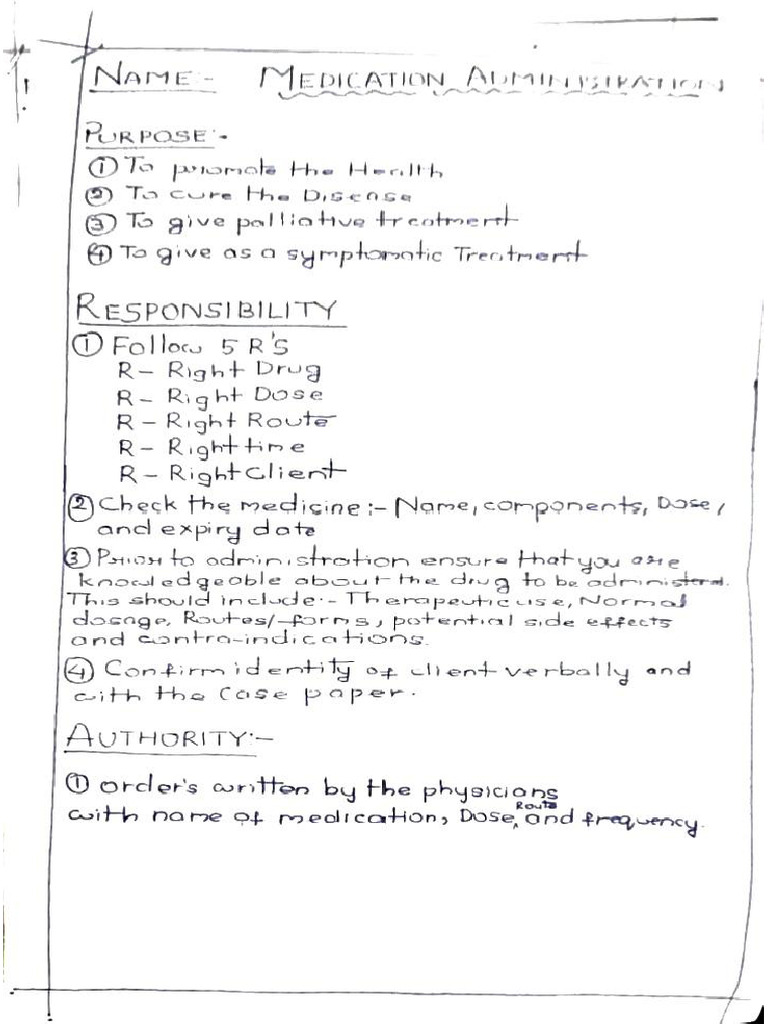 NAME:- MEDICATION ADMINISTRATION
PURPOSE:-
① To promote the Health
② To cure the Disease
③ To give palliative treatment
④ To give as a symptomatic Treatment
RESPONSIBILITY
① Follow 5 R'S
R - Right Drug
R - Right Dose
R - Right Route
R - Right time
R - Right Client
② Check the medicine:- Name, components, Dose,
and expiry date
③ Prior to administration ensure that you are
knowledgeable about the drug to be administered.
This should include:- Therapeutic use, Normal
dosage, Routes/-forms, potential side effects
and contra-indications.
④ Confirm identity of client verbally and
with the case paper.
AUTHORITY:-
① order's written by the physicians
with name of medication, Dose, Route and frequency.